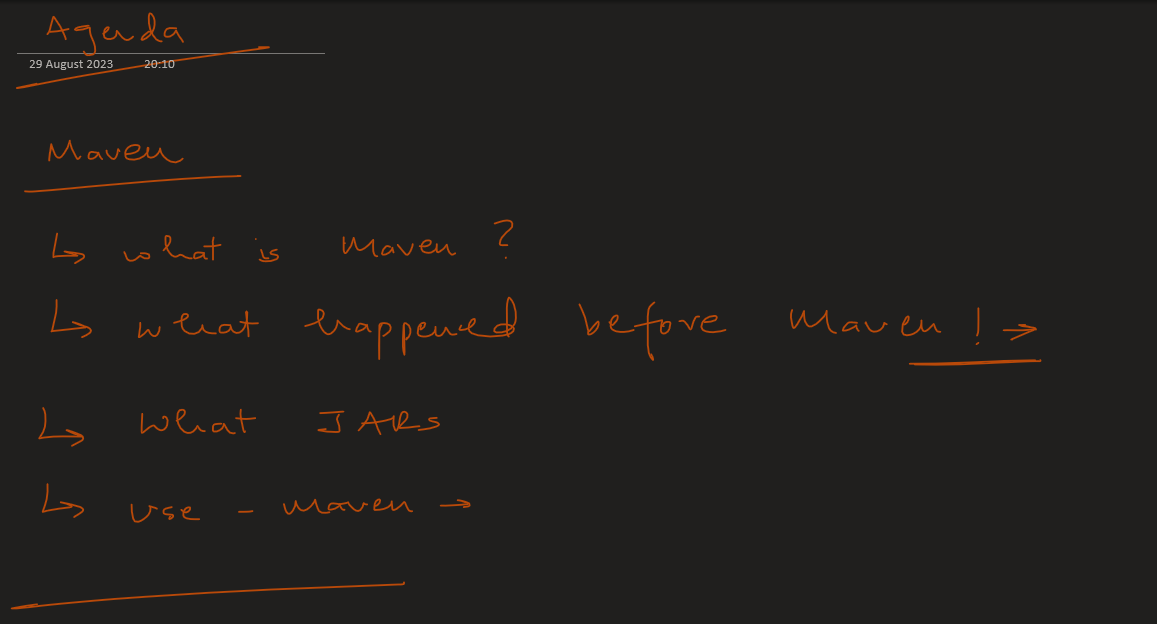 Agenda
29 August 2023 20:10
Maven
↳ what is Maven ?
↳ what happened before Maven ! →
↳ what JARs
↳ use - maven →